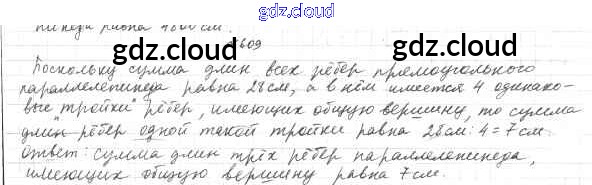 gdz.cloud
равна 4800 см.
609
gdz.cloud gdz.cloud
Поскольку сумма длин всех рёбер прямоугольного
параллелепипеда равна 28 см, а в нём имеется 4 одинако-
вые "тройки" рёбер, имеющих общую вершину, то сумма
длин рёбер одной такой тройки равна 28 см : 4 = 7 см.
Ответ: сумма длин трёх рёбер параллелепипеда,
имеющих общую вершину равна 7 см.
gdz.cloud gdz.cloud